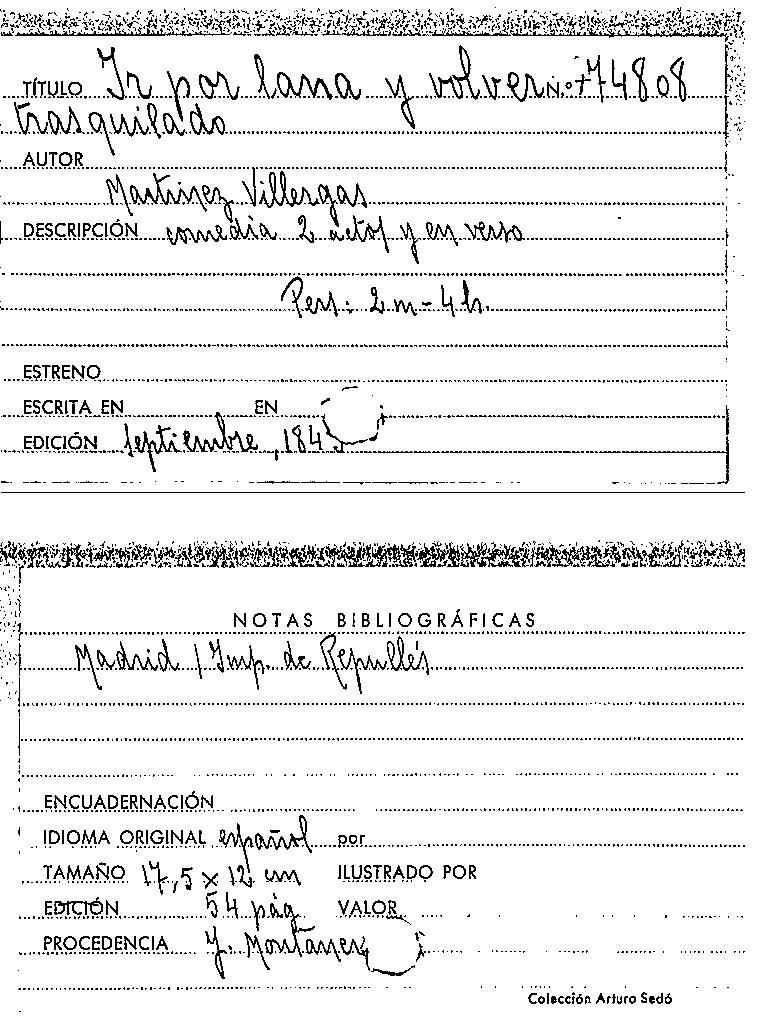 TÍTULO Ir por lana y volver N.º 74808
trasquilado
AUTOR
Martinez Villergas
DESCRIPCIÓN comedia 2 actos y en verso
Pers: 2 m - 4 h.
ESTRENO
ESCRITA EN EN
EDICIÓN septiembre, 184
NOTAS BIBLIOGRÁFICAS
Madrid / Imp. de Repullés
ENCUADERNACIÓN
IDIOMA ORIGINAL español por
TAMAÑO 17,5 x 12 cm ILUSTRADO POR
EDICIÓN 54 pág VALOR
PROCEDENCIA J. Montaner
Colección Arturo Sedó